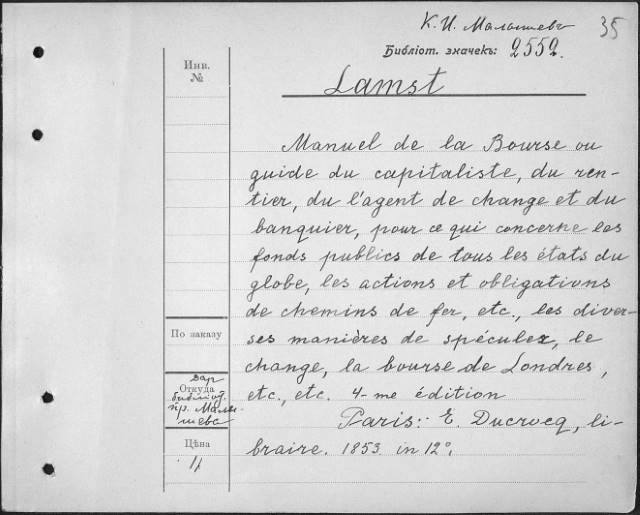 К. И. Малышевъ 35
Библіот. значекъ: 2552.
Инв.
№
Lamst
Manuel de la Bourse ou
guide du capitaliste, du ren-
tier, du l'agent de change et du
banquier, pour ce qui concerne les
fonds publics de tous les états du
globe, les actions et obligations
de chemins de fer, etc., les diver-
ses manières de spéculer, le
change, la bourse de Londres,
etc., etc. 4-me édition
Paris: E. Ducrocq, li-
braire. 1853. in 12°.
По заказу
Откуда
Дар
библіот.
пр. Малы-
шева
Цѣна